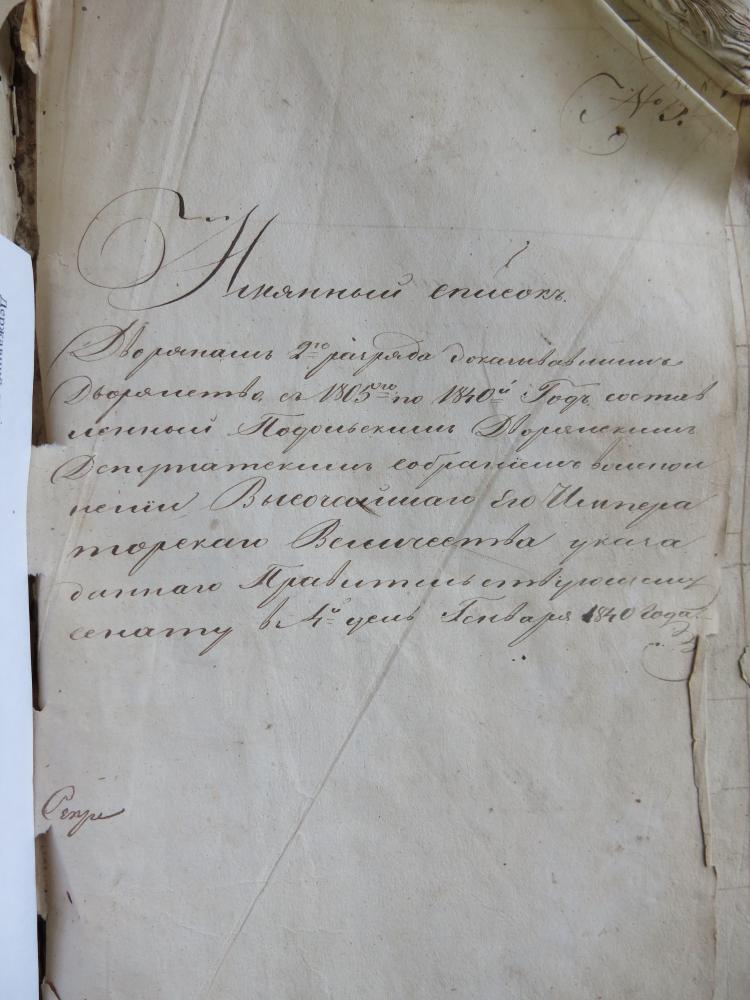 № 13.
Имянный списокъ.
Дворянамъ 2го разряда доказывавшимъ
Дворянство съ 1805го по 1840й Годъ состав
ленный Подольскимъ Дворянскимъ
Депутатскимъ собраніемъ во испол
неніи Высочайшаго Его Импера
торскаго Величества указа
даннаго Правительствующему
сенату в 4й день Генваря 1840 года